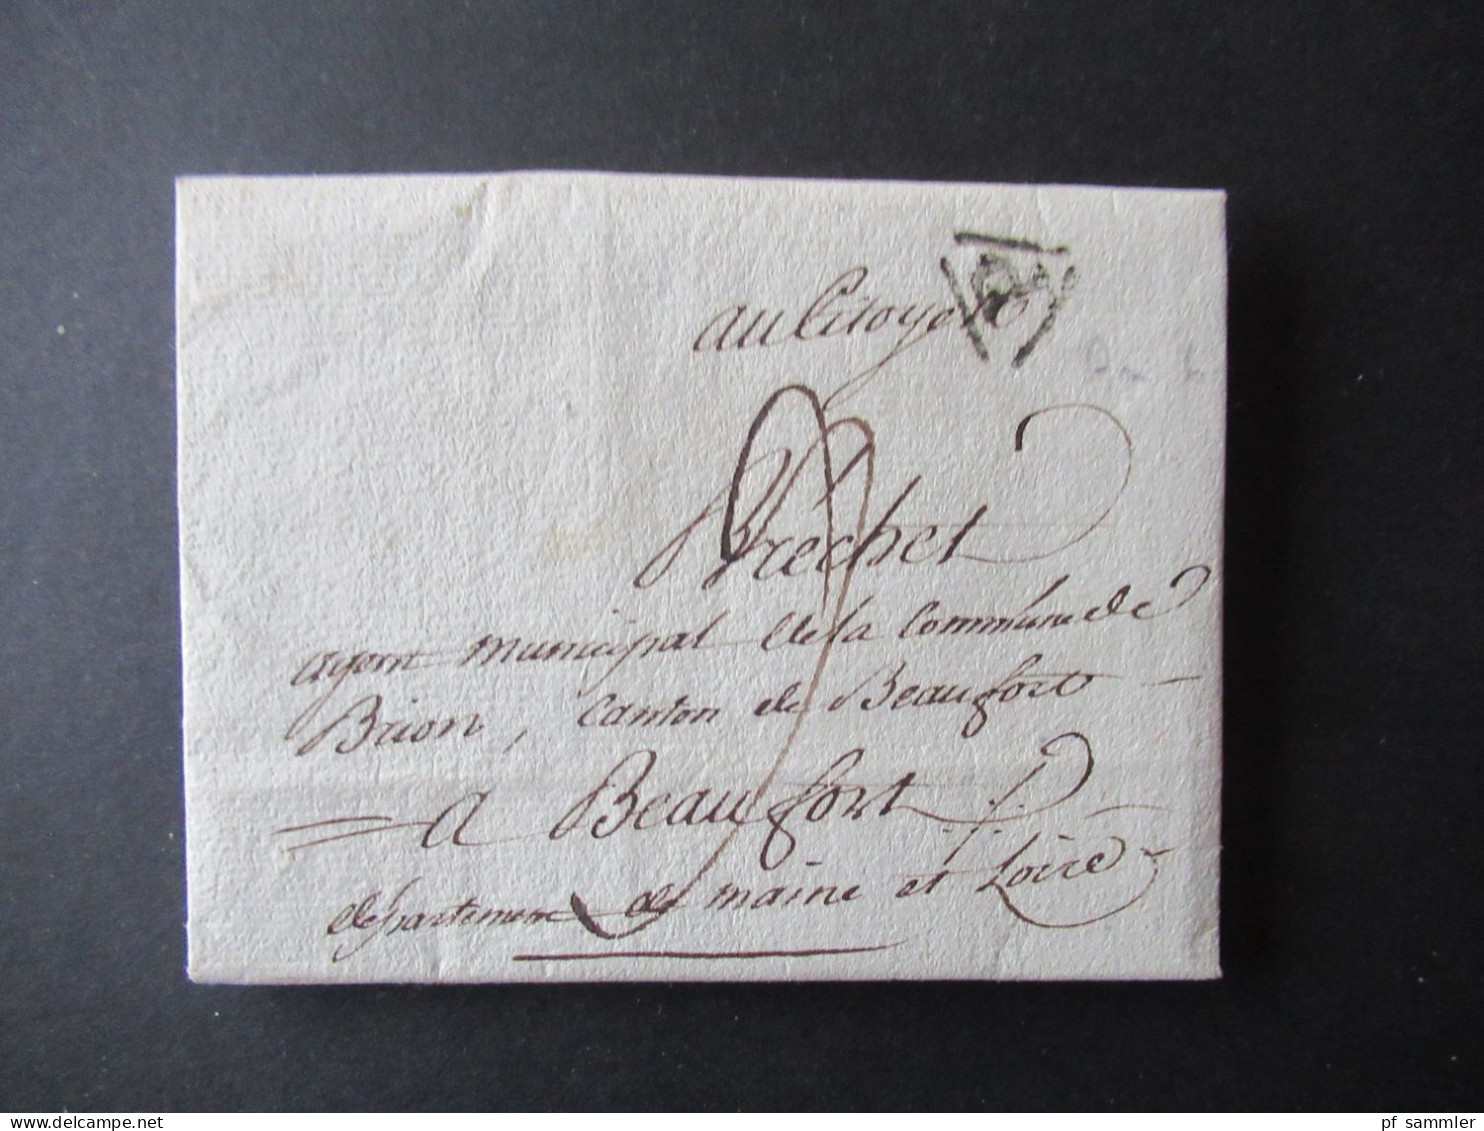 au Citoyen
Frechet
agent municipal de la Commune de
Brion, Canton de Beaufort
a Beaufort
département de maine et Loire
www.delcampe.net
pf_sammler